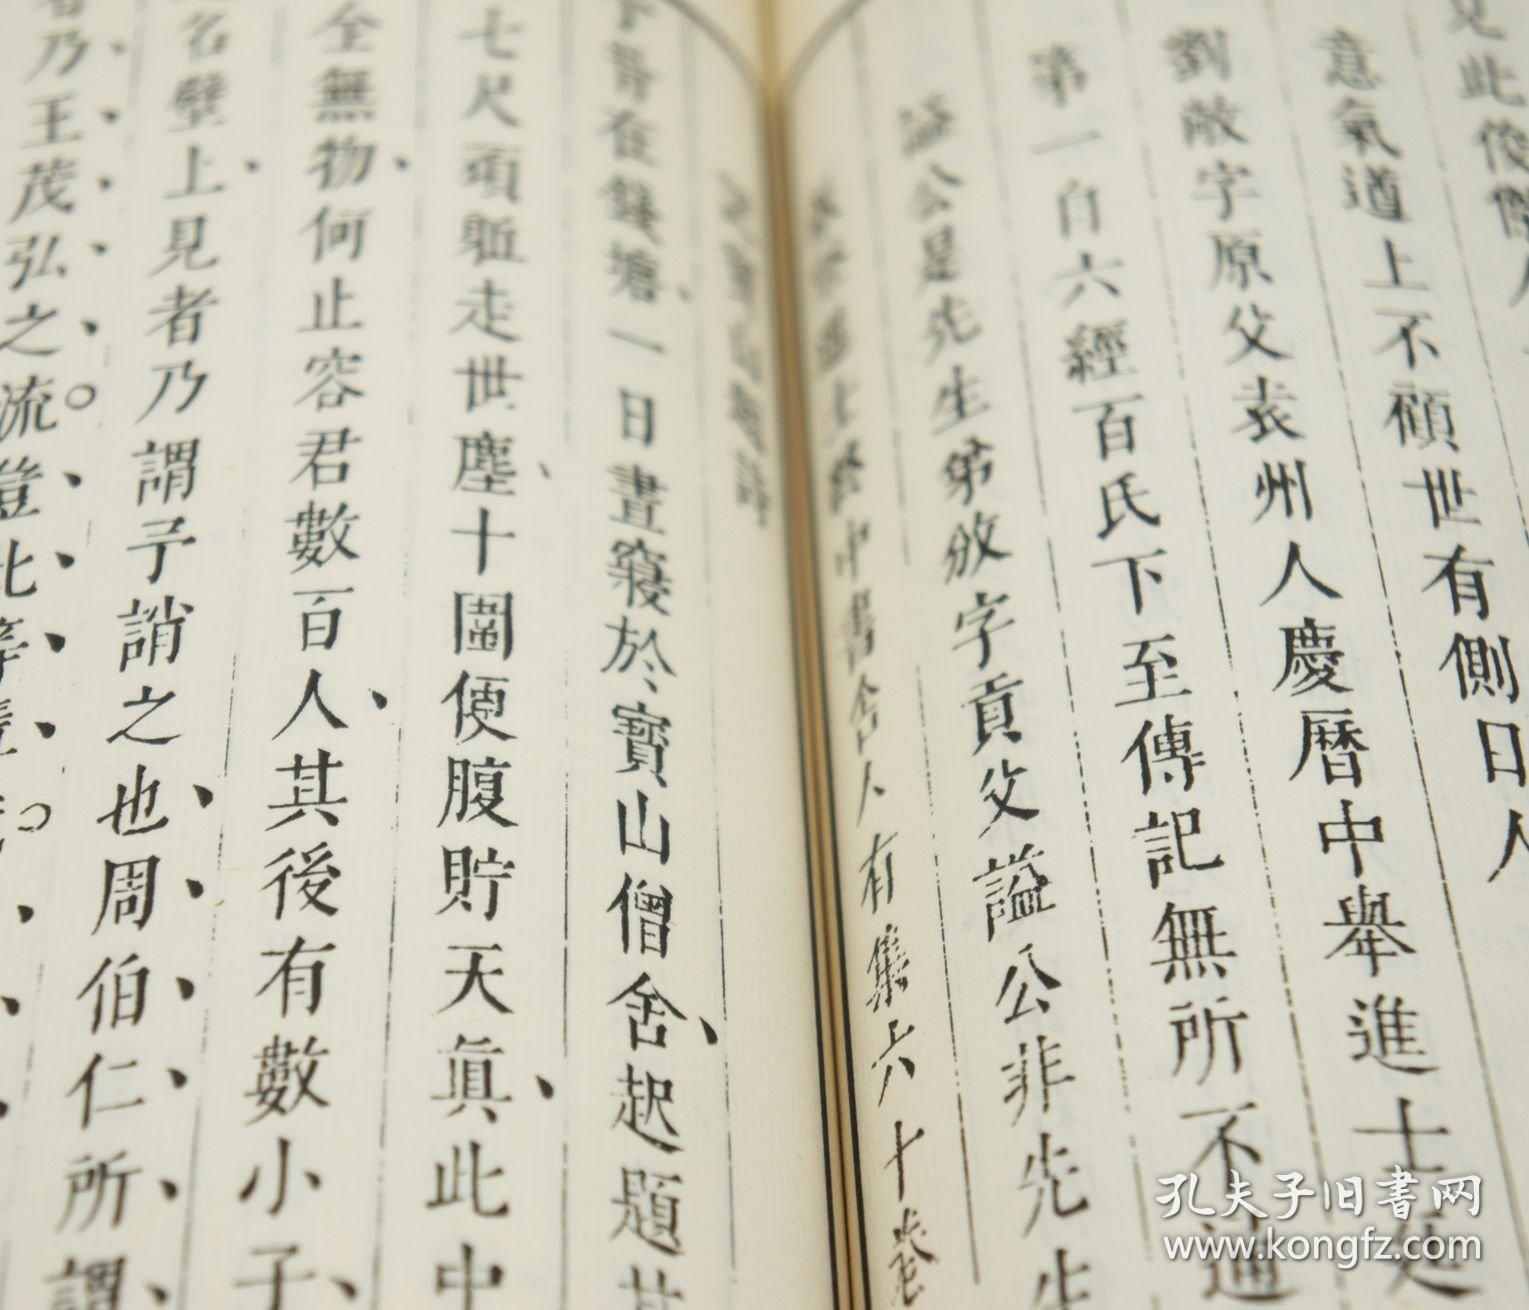 此俊傑
意氣道上不顧世有側目人
劉敞字原父袁州人慶曆中舉進士廷
第一自六經百氏下至傳記無所不通
謚公是先生弟攽字貢父謚公非先生
中書舍人有集六十卷
寶山題詩
昔在錢塘一日晝寢於寶山僧舍起題其
七尺頑軀走世塵十圍便腹貯天真此中
全無物何止容君數百人其後有數小子
名壁上見者乃謂予誚之也周伯仁所謂
者乃王茂弘之流豈此等輩
孔夫子旧書网
www.kongfz.com